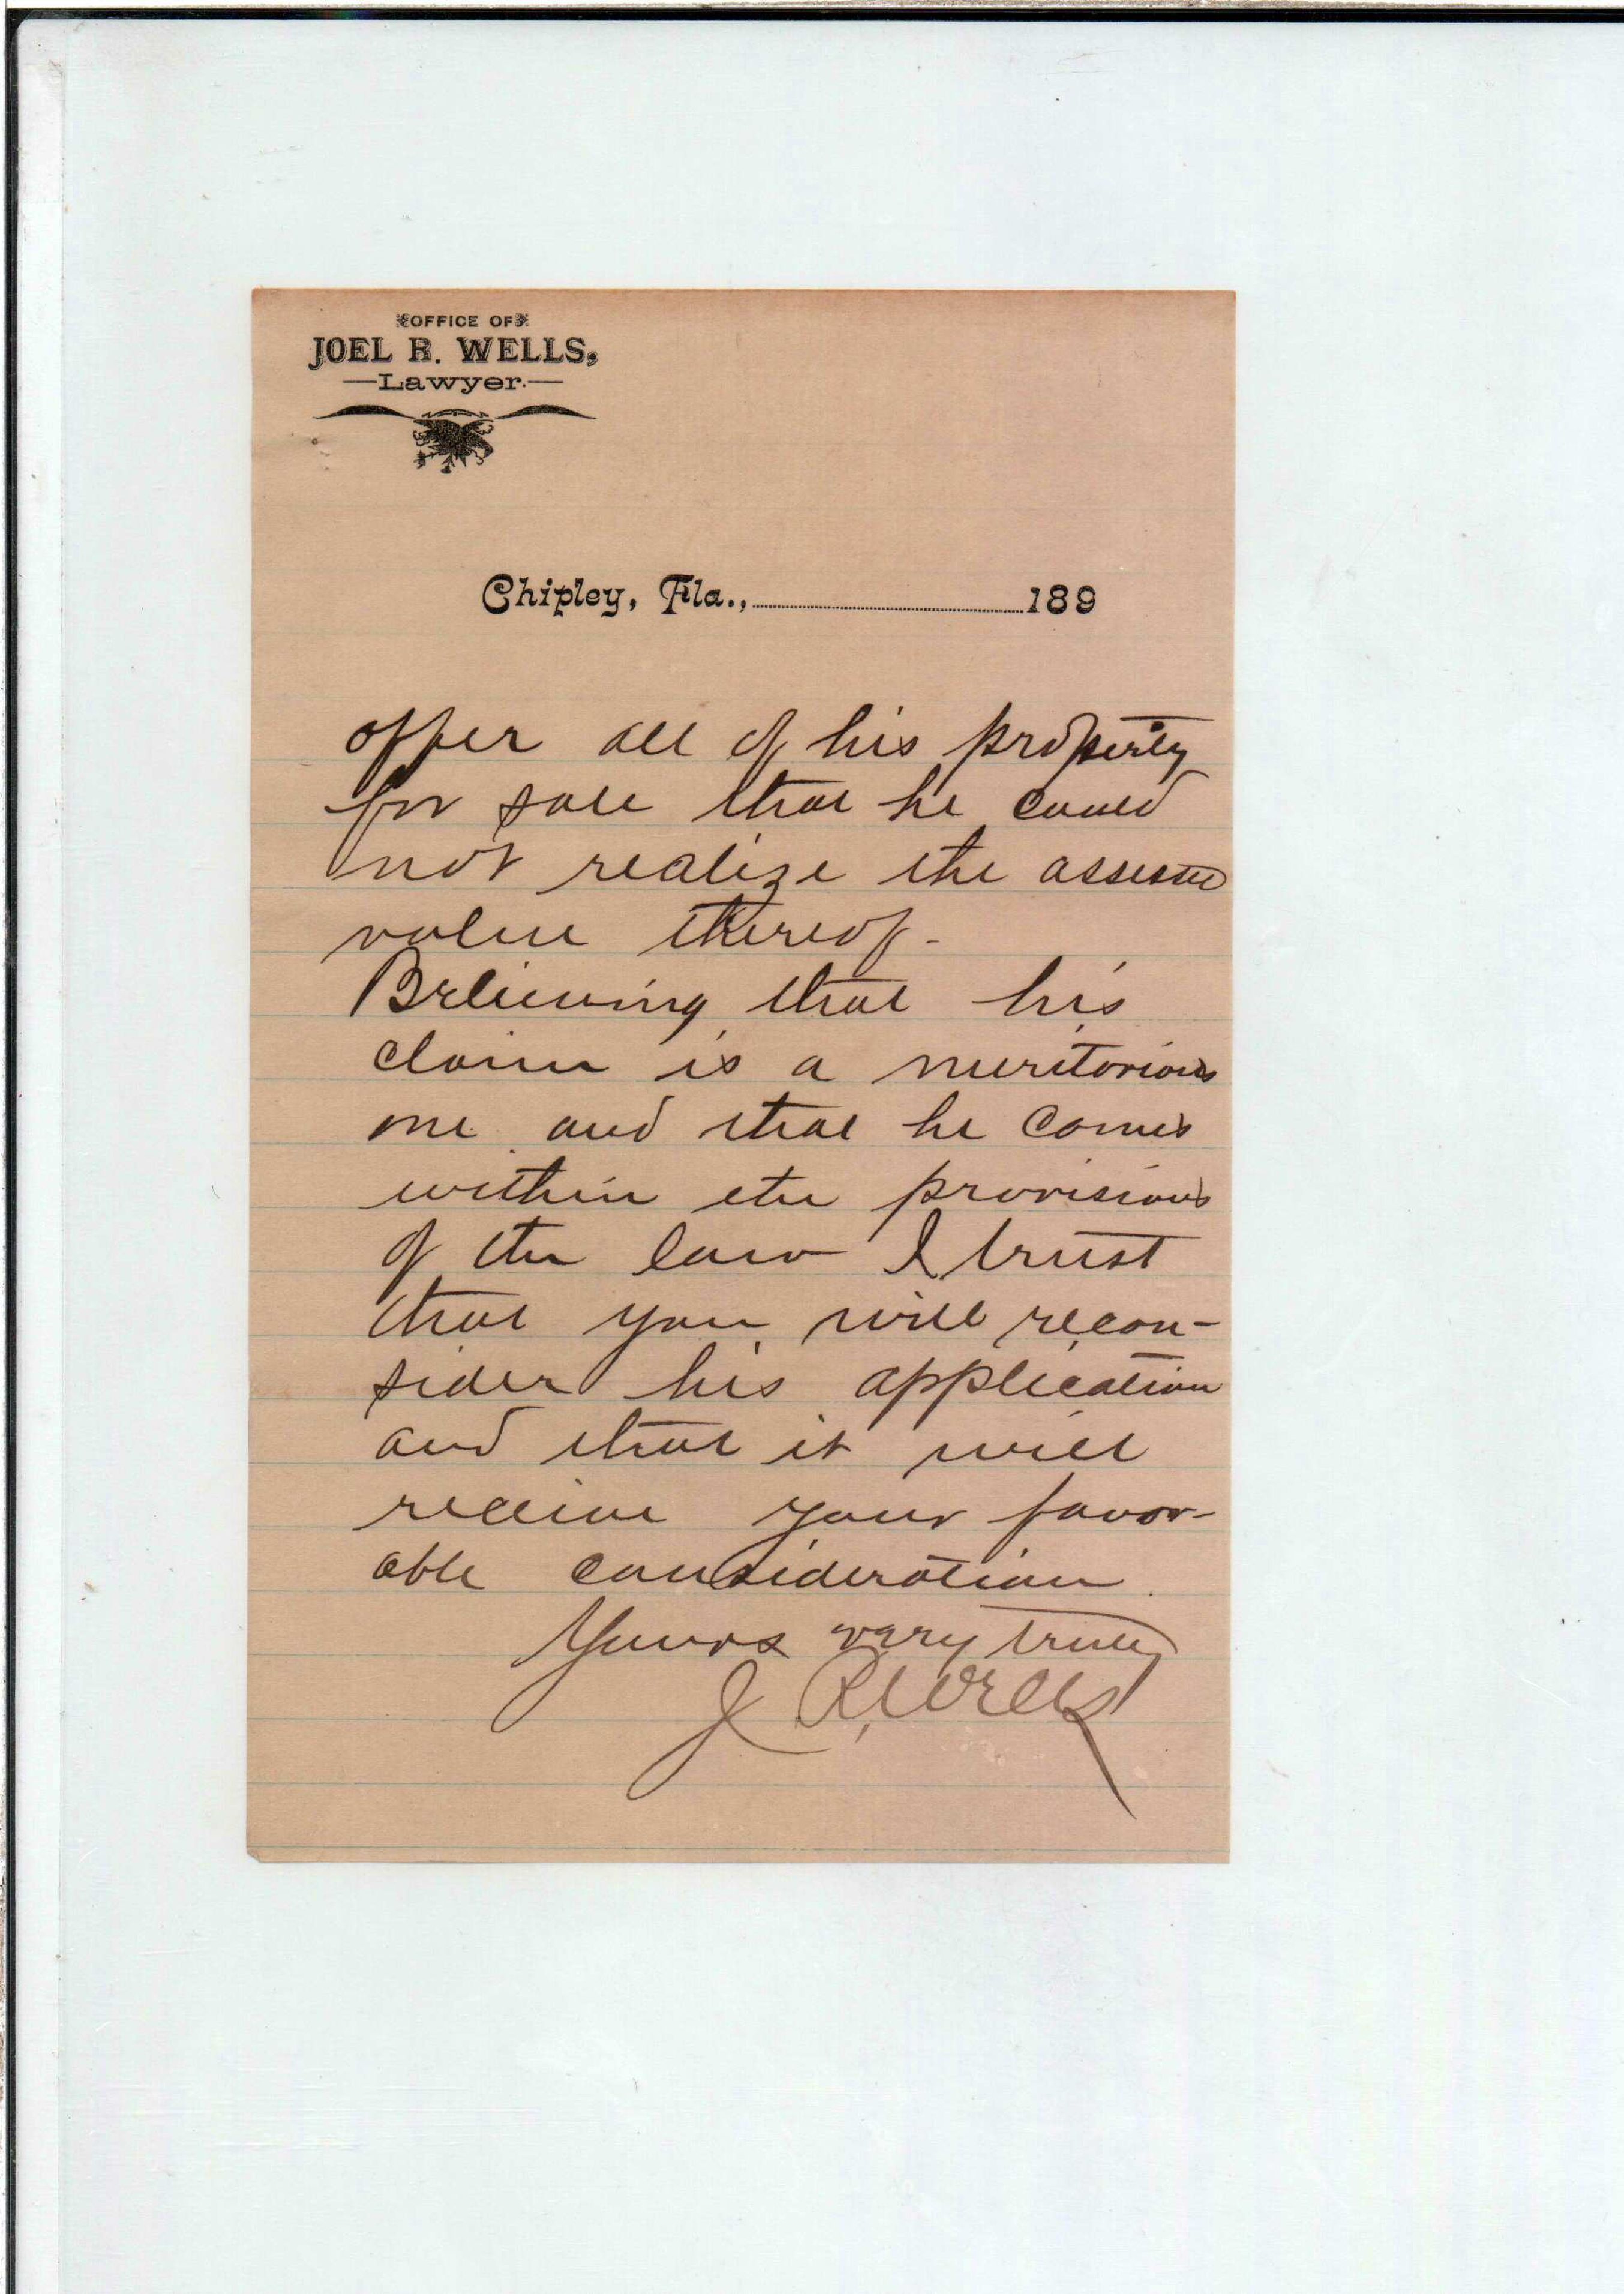 OFFICE OF
JOEL R. WELLS,
—Lawyer.—
Chipley, Fla., 189
offer all of his property
for sale that he could
not realize the assessed
value thereof-
Believing that his
claim is a meritorious
one and that he comes
within the provisions
of the law I trust
that you will recon-
sider his application
and that it will
receive your favor-
able consideration
Yours very truly
J R. Wells